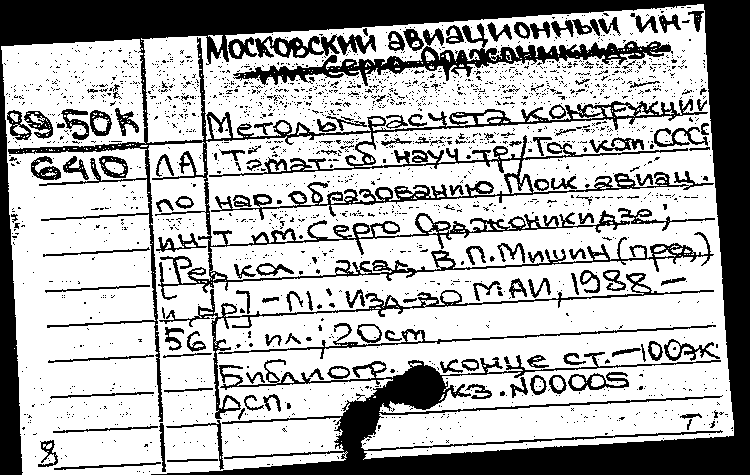 Московский авиационный ин-т
им. Серго Орджоникидзе
89-50К
Методы расчета конструкций
6410
ЛА : Темат. сб. науч. тр. / Гос. ком. СССР
по нар. образованию, Моск. авиац.
ин-т им. Серго Орджоникидзе;
[Редкол.: акад. В.П. Мишин (пред.)
и др.]. - М.: Изд-во МАИ, 1988. -
56 с.: ил.; 20 см.
Библиогр. в конце ст. - 100 эк
ДСП. кз. N00005.
8
Т